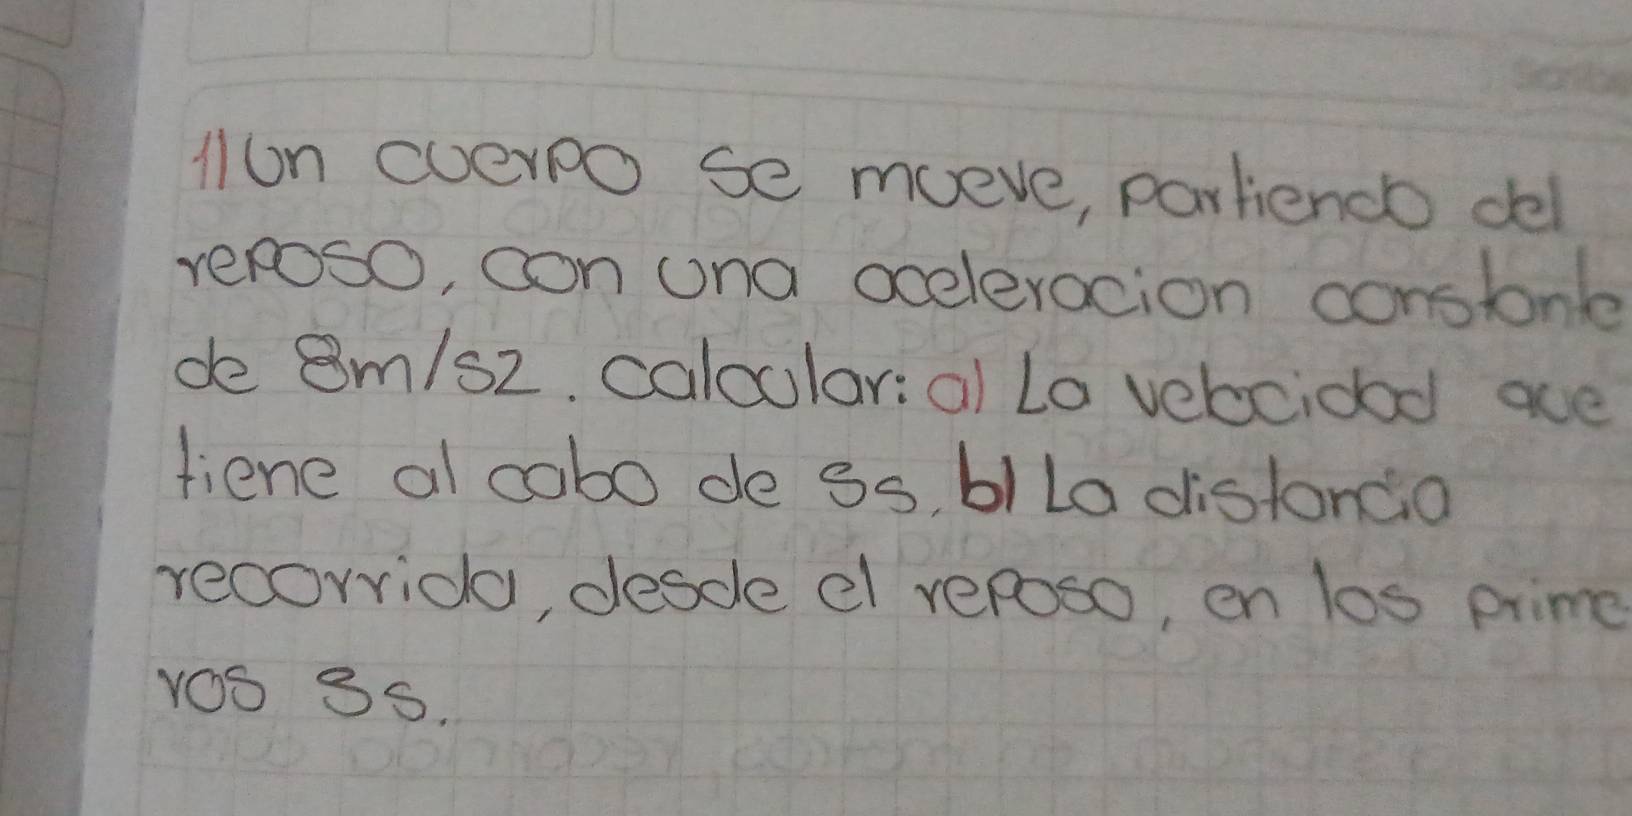 1) Un cuerpo se mueve, partiendo del
reposo, con una aceleracion constante
de 8m/s2. calcular: a) La velocidad que
tiene al cabo de 5s, b) La distancia
recorrida, desde el reposo, en los prime
ros 5s.